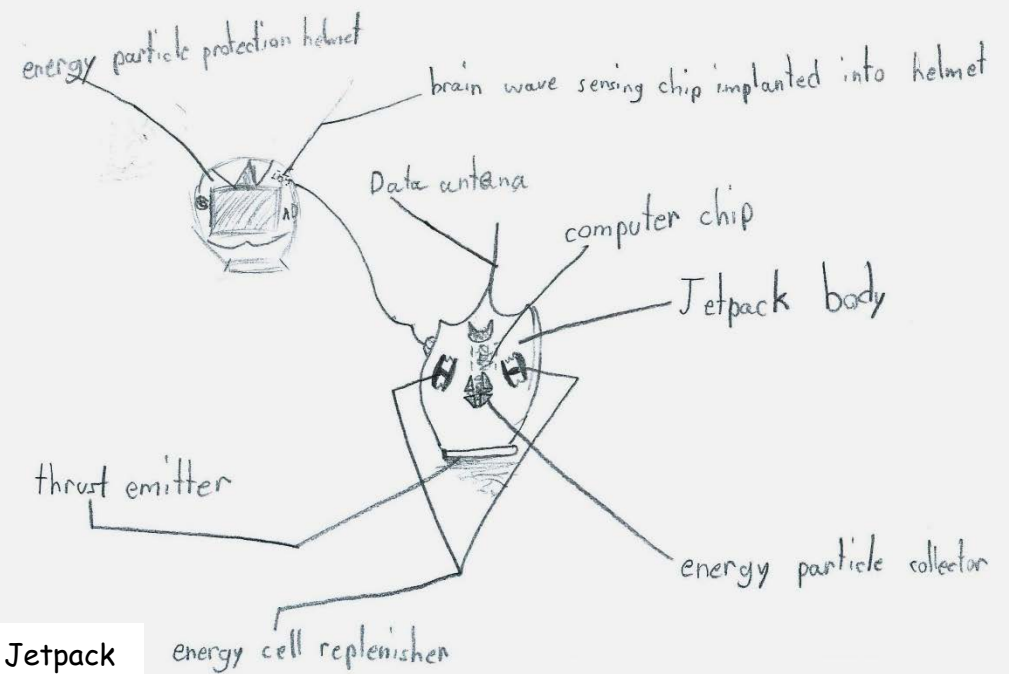 energy particle protection helmet
brain wave sensing chip implanted into helmet
Data antana
computer chip
Jetpack body
thrust emitter
energy particle collector
energy cell replenisher
Jetpack